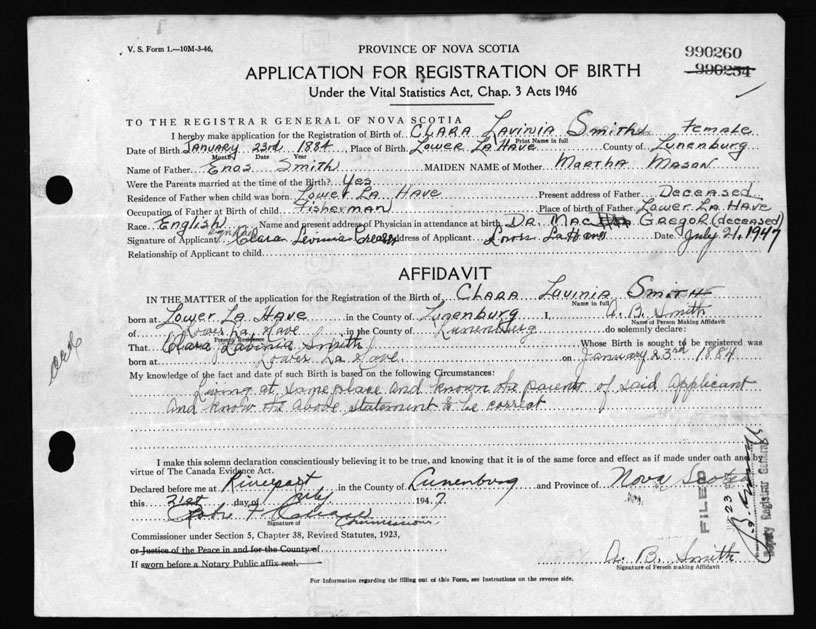 V. S. Form 1.—10M-3-46,
PROVINCE OF NOVA SCOTIA
990260
990254
APPLICATION FOR REGISTRATION OF BIRTH
Under the Vital Statistics Act, Chap. 3 Acts 1946
TO THE REGISTRAR GENERAL OF NOVA SCOTIA
I hereby make application for the Registration of Birth of CLARA LAVINIA Smith Female
Print Name in full
Date of Birth January 23rd 1884 Place of Birth Lower LaHave County of Lunenburg
Month Date Year
Name of Father Enos Smith MAIDEN NAME of Mother Martha Mason
Were the Parents married at the time of the Birth? Yes
Residence of Father when child was born Lower La Have Present address of Father Deceased
Occupation of Father at Birth of child Fisherman Place of birth of Father Lower La Have
Race English Name and present address of Physician in attendance at birth DR. Mac Gregor (deceased)
Signature of Applicant Clara Levinia Address of Applicant Lower LaHave Date July 21, 1947
Relationship of Applicant to child
AFFIDAVIT
IN THE MATTER of the application for the Registration of the Birth of CLARA LAVINIA SMITH
Name in full
born at Lower La Have in the County of Lunenburg I, A. B. Smith
Name of Person Making Affidavit
of Lower La Have in the County of Lunenburg do solemnly declare:
Present Residence
That Clara Lavinia Smith Whose Birth is sought to be registered was
born at Lower La Have on January 23rd 1884
My knowledge of the fact and date of such Birth is based on the following Circumstances:
Living at same place and known the parents of said applicant
and know the above statement to be correct
I make this solemn declaration conscientiously believing it to be true, and knowing that it is of the same force and effect as if made under oath and
virtue of The Canada Evidence Act.
Declared before me at in the County of Lunenburg and Province of Nova Scotia
this 21st day of July 1947
Signature of Commissioner
Commissioner under Section 5, Chapter 38, Revised Statutes, 1923,
or Justice of the Peace in and for the County of
If sworn before a Notary Public affix seal.
A. B. Smith
Signature of Person making Affidavit
For Information regarding the filling out of this Form, see Instructions on the reverse side.
FILED
Deputy Registrar General